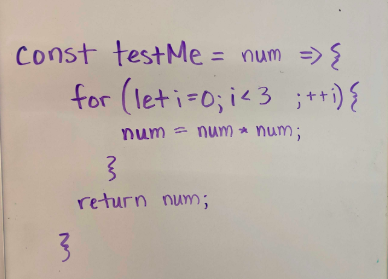 const testMe = num => {
for (let i=0; i<3 ; ++i) {
num = num * num;
}
return num;
}